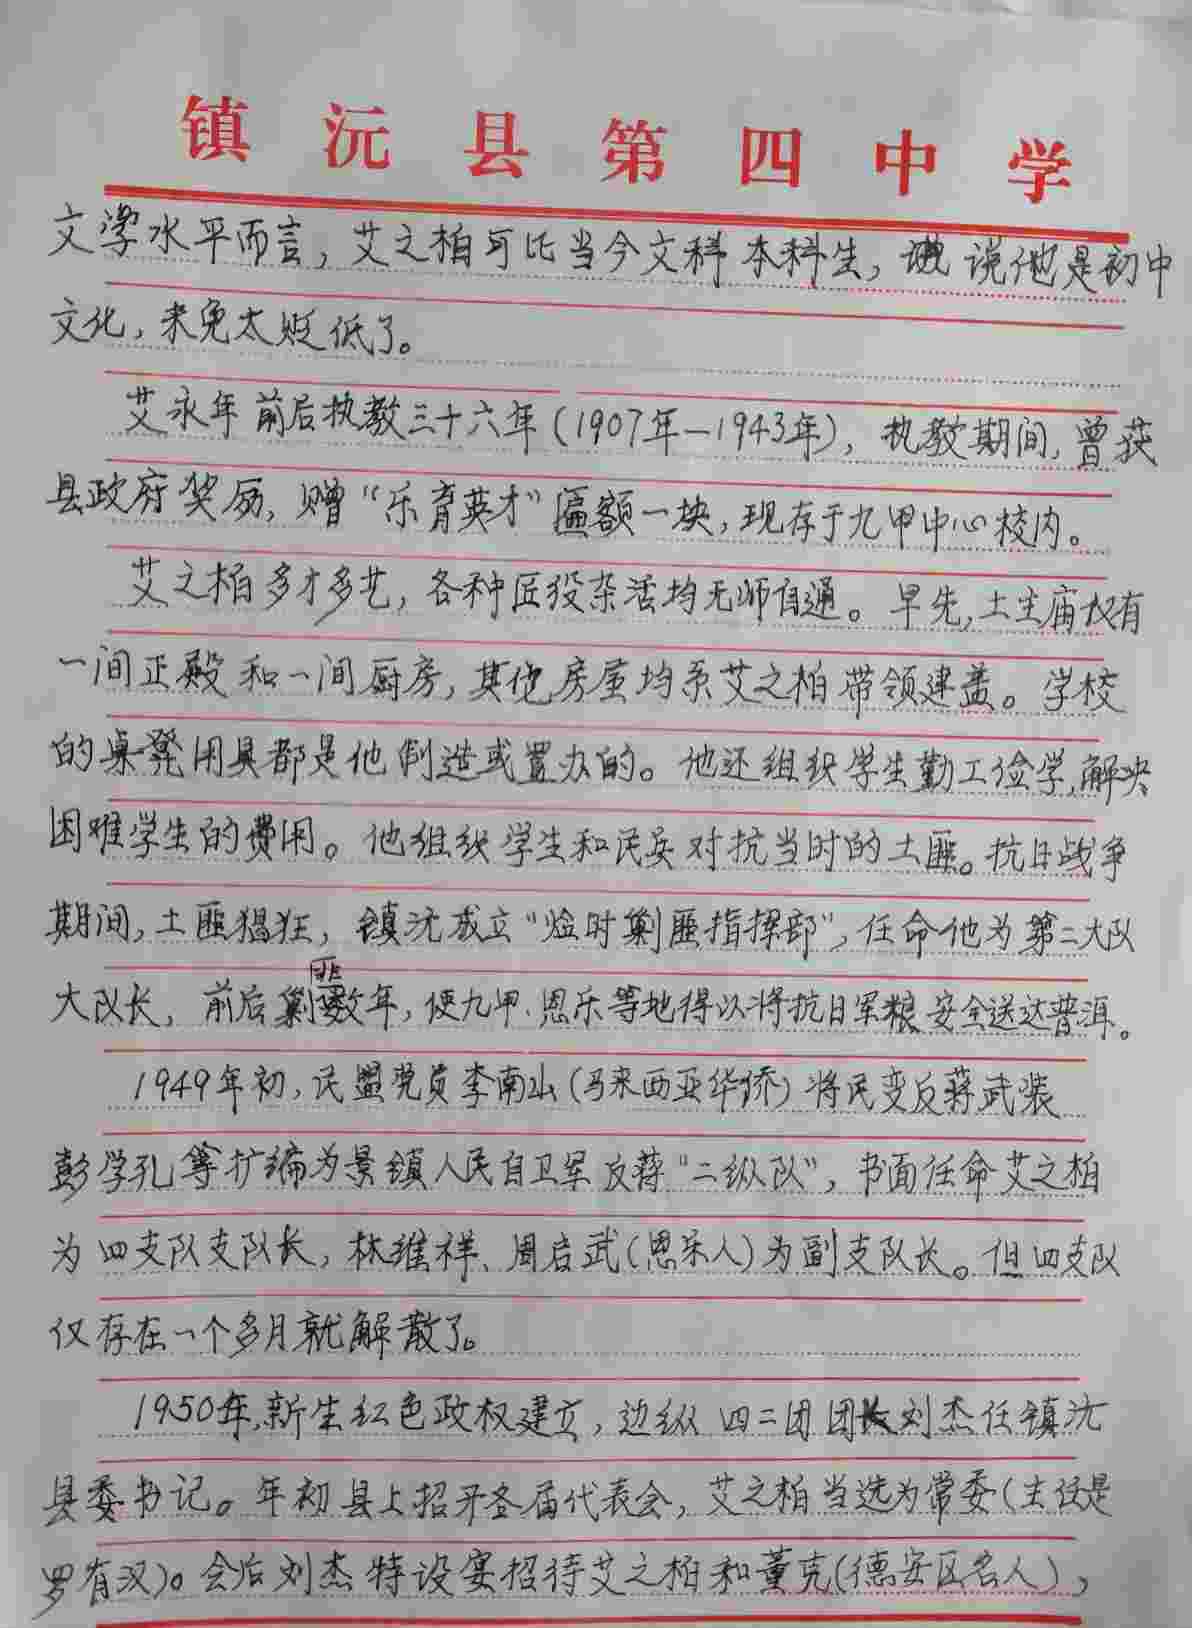 镇沅县第四中学
文学水平而言，艾之柏可比当今文科本科生，说他是初中
文化，未免太贬低了。
艾永年前后执教三十六年（1907年—1943年），执教期间，曾获
县政府奖励，赠“乐育英才”匾额一块，现存于九甲中心校内。
艾之柏多才多艺，各种匠役杂活均无师自通。早先，土主庙仅有
一间正殿和一间厨房，其他房屋均系艾之柏带领建盖。学校
的桌凳用具都是他制造或置办的。他还组织学生勤工俭学，解决
困难学生的费用。他组织学生和民兵对抗当时的土匪。抗日战争
期间，土匪猖狂，镇沅成立“临时剿匪指挥部”，任命他为第二大队
大队长，前后剿匪数年，使九甲、恩乐等地得以将抗日军粮安全送达普洱。
1949年初，民盟党员李南山（马来西亚华侨）将民变反蒋武装
彭学孔等扩编为景镇人民自卫军反蒋“二纵队”，书面任命艾之柏
为四支队支队长，林维祥、周启武（恩乐人）为副支队长。但四支队
仅存在一个多月就解散了。
1950年，新生红色政权建立，边纵四二团团长刘杰任镇沅
县委书记。年初县上招开各届代表会，艾之柏当选为常委（主任是
罗有汉）。会后刘杰特设宴招待艾之柏和董克（德安区名人），